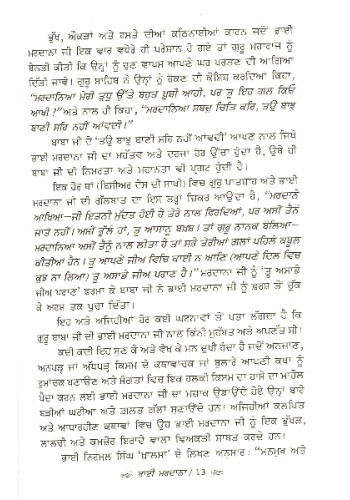 ਭੁੱਖ, ਔਕੜਾਂ ਅਤੇ ਰਸਤੇ ਦੀਆਂ ਕਠਿਨਾਈਆਂ ਕਾਰਨ ਜਦੋਂ ਭਾਈ
ਮਰਦਾਨਾ ਇਕ ਵਾਰ ਵਧੇਰੇ ਹੀ ਪਰੇਸ਼ਾਨ ਹੋ ਗਏ ਤਾਂ ਗੁਰੂ ਮਹਾਰਾਜ ਨੂੰ
ਬੇਨਤੀ ਕੀਤੀ ਕਿ ਉਨ੍ਹਾਂ ਨੂੰ ਹੁਣ ਵਾਪਸ ਆਪਣੇ ਘਰ ਪਰਤਣ ਦੀ ਆਗਿਆ
ਦਿੱਤੀ ਜਾਵੇ। ਗੁਰੂ ਸਾਹਿਬ ਨੇ ਉਨ੍ਹਾਂ ਨੂੰ ਰੋਕਣ ਦੀ ਕੋਸ਼ਿਸ਼ ਕਰਦਿਆਂ ਕਿਹਾ,
“ਮਰਦਾਨਿਆ ਮੇਰੀ ਤੁਧੁ ਉੱਤੇ ਬਹੁਤ ਖੁਸ਼ੀ ਆਹੀ, ਪਰ ਤੂ ਇਹ ਗਲ ਕਿਓ
ਆਖੀ?” ਅਤੇ ਨਾਲ ਹੀ ਕਿਹਾ, “ਮਰਦਾਨਿਆ ਸਬਦੁ ਚਿਤਿ ਕਰਿ, ਤਉ ਬਾਝੁ
ਬਾਣੀ ਸਰਿ ਨਹੀਂ ਆਂਵਦੀ।”
ਬਾਬਾ ਜੀ ਦੇ ‘ਤਉ ਬਾਝੁ ਬਾਣੀ ਸਰਿ ਨਹੀਂ ਆਂਵਦੀ’ ਆਖਣ ਨਾਲ ਜਿਥੇ
ਭਾਈ ਮਰਦਾਨਾ ਜੀ ਦਾ ਮਹੱਤਵ ਅਤੇ ਦਰਜਾ ਹੋਰ ਉੱਚਾ ਹੁੰਦਾ ਹੈ, ਉਥੇ ਹੀ
ਬਾਬਾ ਜੀ ਦੀ ਨਿਮਰਤਾ ਅਤੇ ਮਹਾਨਤਾ ਵੀ ਪ੍ਰਗਟ ਹੁੰਦੀ ਹੈ।
ਇਕ ਹੋਰ ਥਾਂ (ਬਿਸੀਅਰ ਦੇਸ ਦੀ ਸਾਖੀ) ਵਿਚ ਗੁਰੂ ਪਾਤਸ਼ਾਹ ਅਤੇ ਭਾਈ
ਮਰਦਾਨਾ ਜੀ ਦੀ ਗੱਲਬਾਤ ਦਾ ਇਸ ਤਰ੍ਹਾਂ ਜ਼ਿਕਰ ਆਉਂਦਾ ਹੈ, “ਮਰਦਾਨੇ
ਆਖਿਆ—ਜੀ ਇਤਨੀ ਮੁੱਦਤ ਹੋਈ ਹੈ ਤੇਰੇ ਨਾਲ ਫਿਰਦਿਆਂ, ਪਰ ਅਸੀਂ ਤੈਨੋ
ਜਾਤੋ ਨਹੀਂ। ਅਸੀਂ ਭੁੱਲੇ ਹਾਂ, ਤੂ ਆਸਾਨੂ ਬਖ਼ਸ਼। ਤਾਂ ਗੁਰੂ ਨਾਨਕ ਬੋਲਿਆ—
ਮਰਦਾਨਿਆ ਅਸੀਂ ਤੈਨੂੰ ਨਾਲ ਲੀਤਾ ਹੈ ਤਾਂ ਸਭੋ ਤੇਰੀਆਂ ਗਲਾਂ ਪਹਿਲੇ ਕਬੂਲ
ਕੀਤੀਆਂ ਹੈਨ। ਤੂ ਆਪਣੇ ਜੀਅ ਵਿਚਿ ਕਾਈ ਨ ਆਣਿ (ਆਪਣੇ ਦਿਲ ਵਿਚ
ਕੁਛ ਨਾ ਲਿਆ) ਤੂ ਅਸਾਡੇ ਜੀਅ ਪਰਾਣ ਹੈ।” ਮਰਦਾਨਾ ਜੀ ਨੂੰ ‘ਤੂ ਅਸਾਡੇ
ਜੀਅ ਪਰਾਣ’ ਫਰਮਾ ਕੇ ਬਾਬਾ ਜੀ ਨੇ ਭਾਈ ਮਰਦਾਨਾ ਜੀ ਨੂੰ ਫ਼ਰਸ਼ ਤੋਂ ਚੁੱਕ
ਕੇ ਅਰਸ਼ ਤਕ ਪੁਚਾ ਦਿੱਤਾ।
ਇਹ ਅਤੇ ਅਜਿਹੀਆਂ ਹੋਰ ਕਈ ਘਟਨਾਵਾਂ ਤੋਂ ਪਤਾ ਲੱਗਦਾ ਹੈ ਕਿ
ਗੁਰੂ ਬਾਬਾ ਜੀ ਦੀ ਭਾਈ ਮਰਦਾਨਾ ਜੀ ਨਾਲ ਕਿੰਨੀ ਮੁਹੱਬਤ ਅਤੇ ਅਪਣੱਤ ਸੀ।
ਕਦੀ ਕਦੀ ਇਹ ਸੁਣ ਕੇ ਅਤੇ ਵੇਖ ਕੇ ਮਨ ਦੁਖੀ ਹੁੰਦਾ ਹੈ ਜਦੋਂ ਅਨਜਾਣ,
ਅਨਪੜ੍ਹ ਜਾਂ ਅੱਧਪੜ੍ਹ ਕਿਸਮ ਦੇ ਕਥਾਵਾਚਕ ਜਾਂ ਬੁਲਾਰੇ ਆਪਣੀ ਕਥਾ ਨੂੰ
ਰੁਮਾਂਚਕ ਬਣਾਉਣ ਅਤੇ ਸੰਗਤਾਂ ਵਿਚ ਇਕ ਹਲਕੀ ਕਿਸਮ ਦਾ ਹਾਸੇ ਦਾ ਮਾਹੌਲ
ਪੈਦਾ ਕਰਨ ਲਈ ਭਾਈ ਮਰਦਾਨਾ ਜੀ ਦਾ ਮਜ਼ਾਕ ਉਡਾਉਂਦੇ ਹੋਏ ਉਨ੍ਹਾਂ ਬਾਰੇ
ਬੜੀਆਂ ਘਟੀਆ ਅਤੇ ਗ਼ਲਤ ਗੱਲਾਂ ਸੁਣਾਉਂਦੇ ਹਨ। ਅਜਿਹੀਆਂ ਕਲਪਿਤ
ਅਤੇ ਆਧਾਰਹੀਣ ਕਥਾਵਾਂ ਵਿਚ ਉਹ ਭਾਈ ਮਰਦਾਨਾ ਜੀ ਨੂੰ ਇਕ ਭੁੱਖੜ,
ਲਾਲਚੀ ਅਤੇ ਕਮਜ਼ੋਰ ਇਰਾਦੇ ਵਾਲਾ ਵਿਅਕਤੀ ਸਾਬਤ ਕਰਦੇ ਹਨ।
ਭਾਈ ਨਿਰਮਲ ਸਿੰਘ ‘ਖ਼ਾਲਸਾ’ ਦੇ ਲਿਖਣ ਅਨੁਸਾਰ: “ਮਨਮੁਖ ਅਤੇ
ਭਾਈ ਮਰਦਾਨਾ / 13